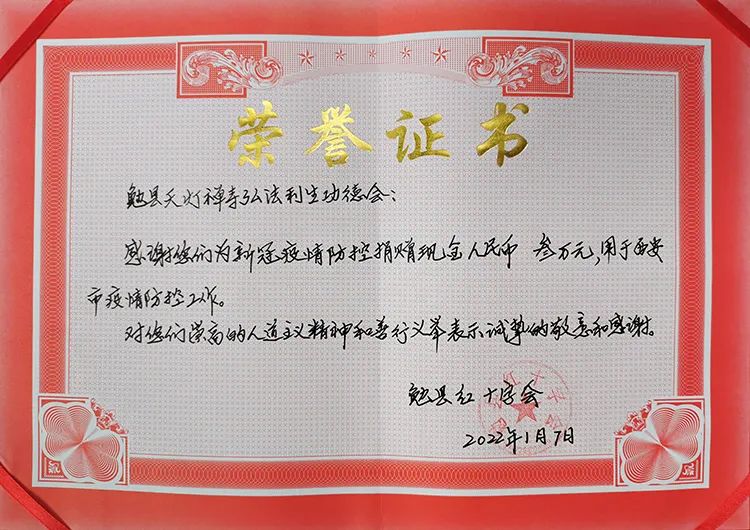 荣誉证书
勉县天灯禅寺弘法利生功德会：
感谢您们为新冠疫情防控捐赠现金人民币 叁万元，用于西安
市疫情防控工作。
对您们崇高的人道主义精神和善行义举表示诚挚的敬意和感谢。
勉县红十字会
2022年1月7日